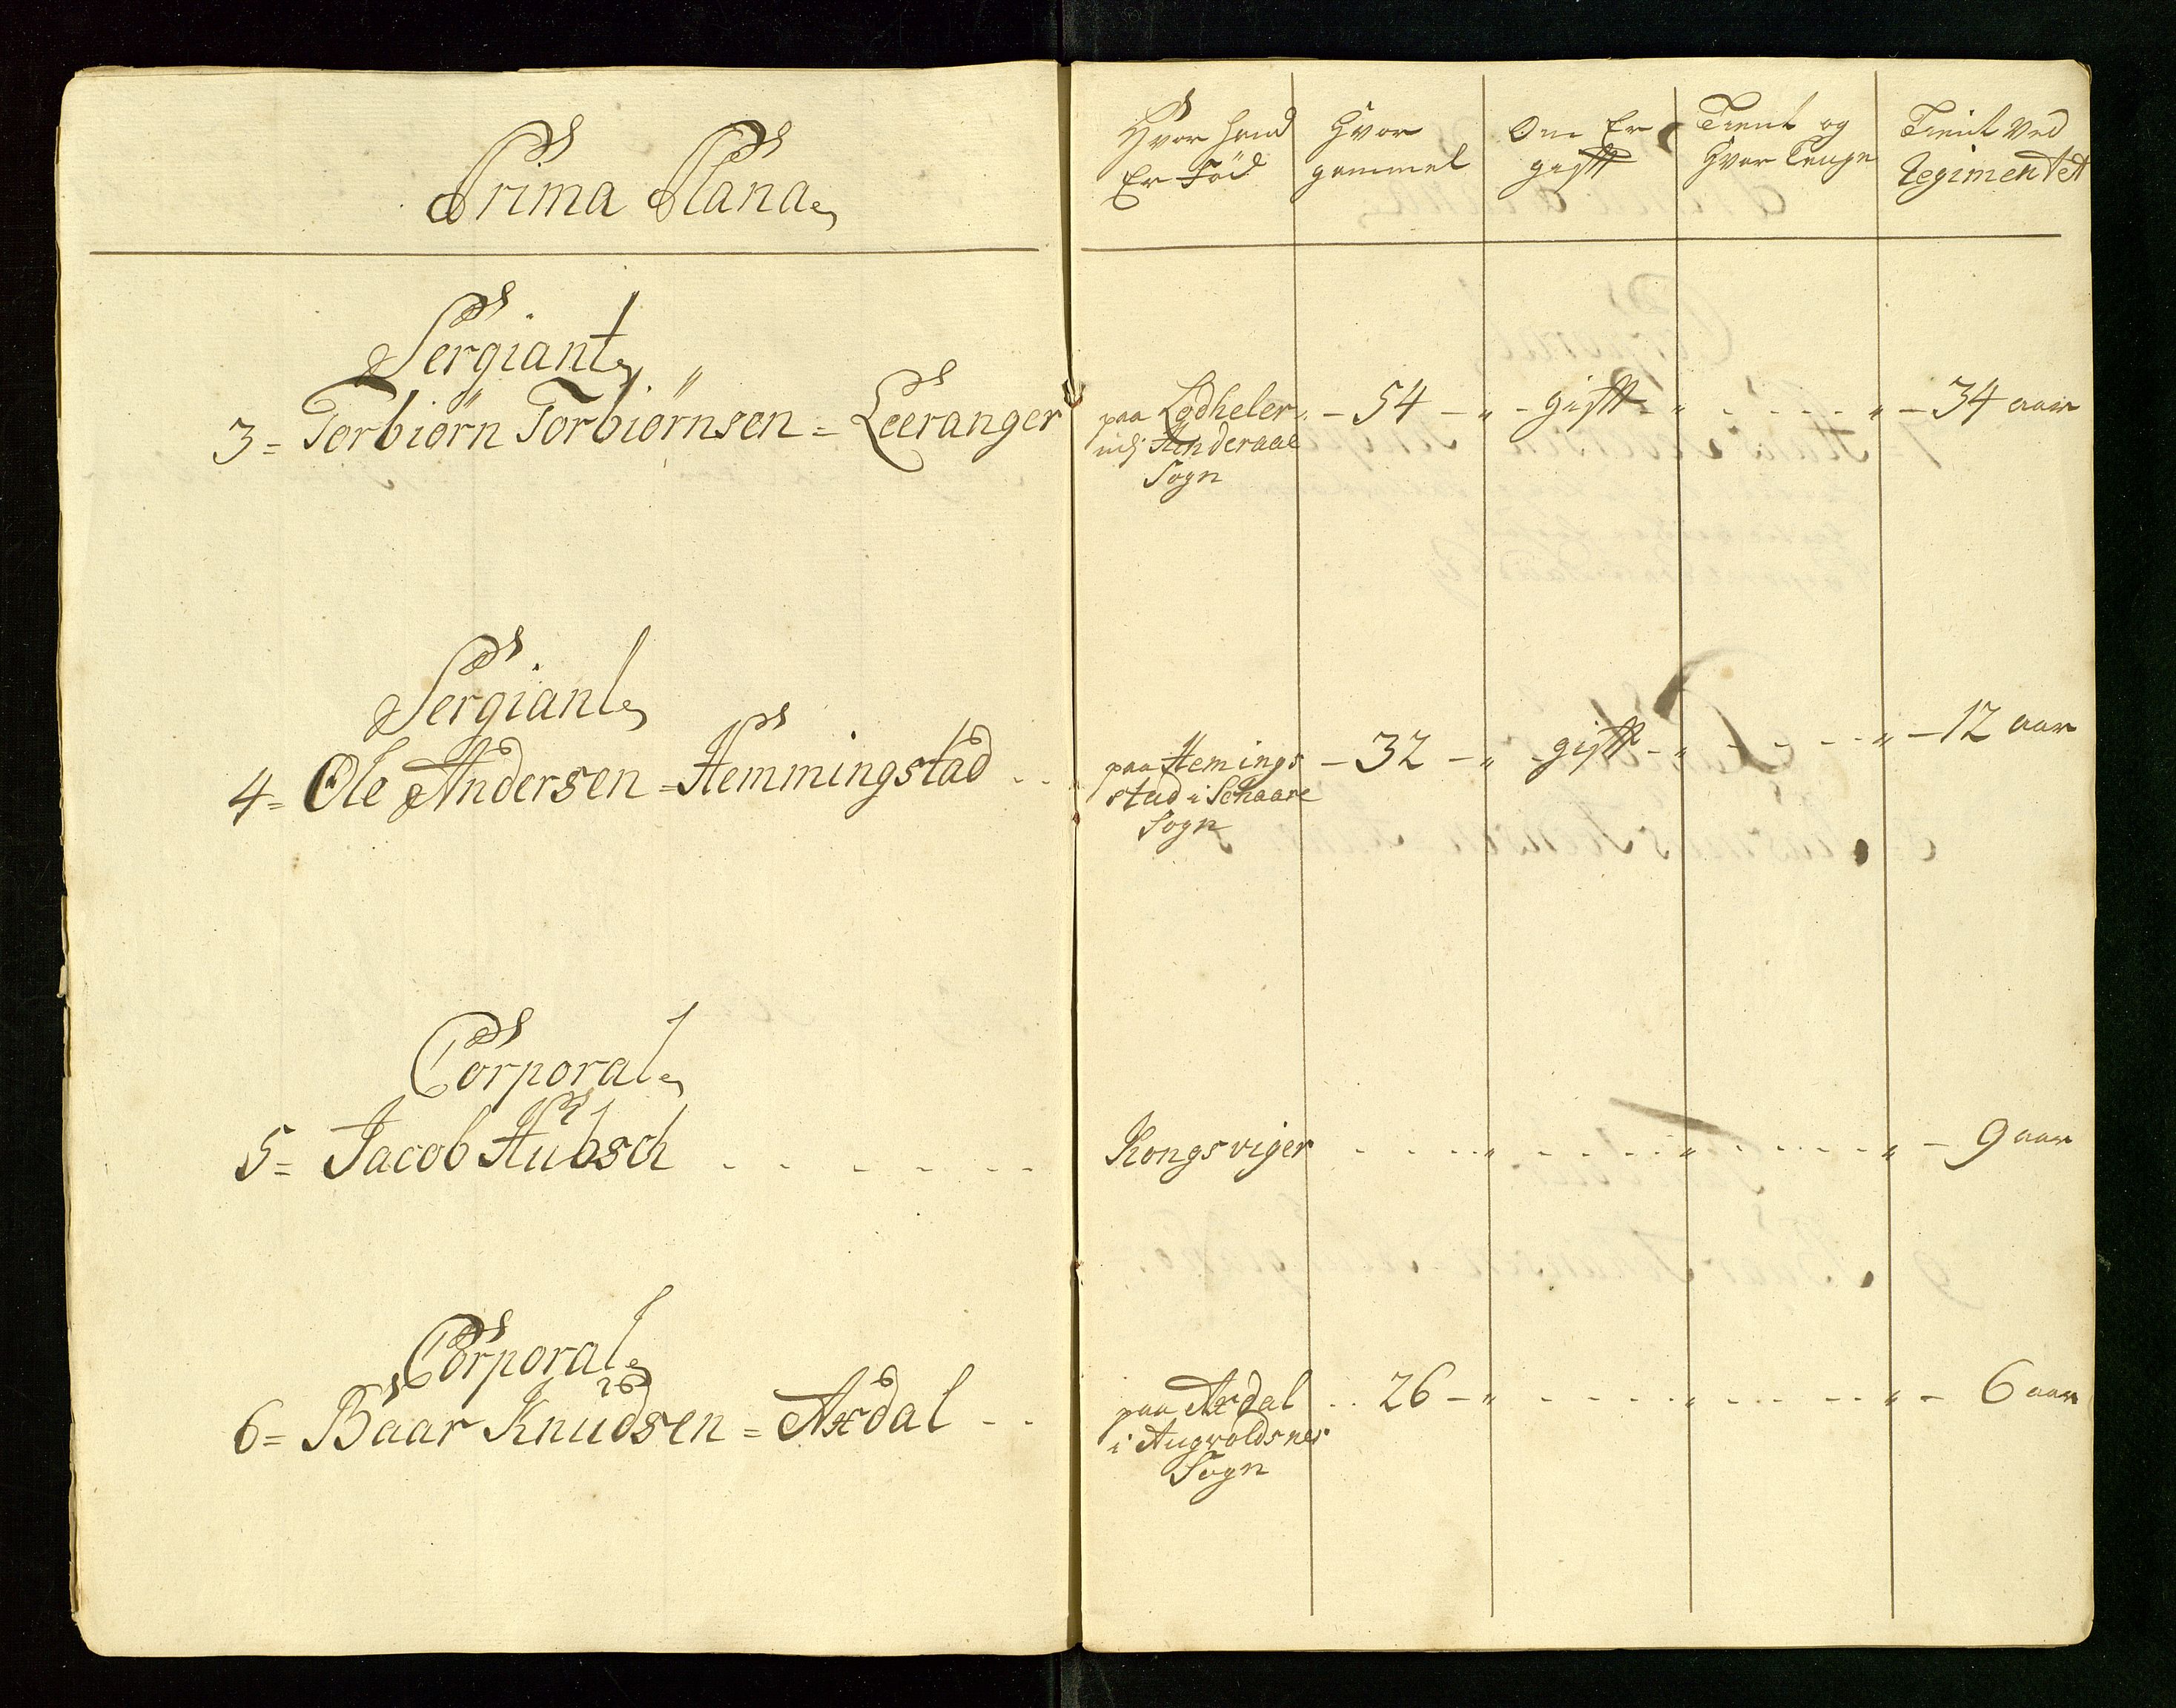 Prima Plana
Sergiant
3 = Torbiørn Torbiørnsen = Leeranger
Sergiant
4 = Ole Andersen = Hemmingstad
Corporal
5 = Jacob Hübsch
Corporal
6 = Baar Knudsen = Axdal
Hvor hand Er Fød
Hvor gammel
Om Er gifft
Tient og Hvor Lenge
Tient ved Regimentet
paa Lødheler - 54 - " - gifft - " - - - - " - 34 aar
udj Hinderaae
Sogn
paa Hemings - 32 - " gifft - " - - - - " - 12 aar
stad i Schaare
Sogn
Kongsviger - - - - " - - - - " - - - - " - 9 aar
paa Axdal - - 26 - " - - - - " - - - - " - 6 aar
i Augvoldsnes
Sogn